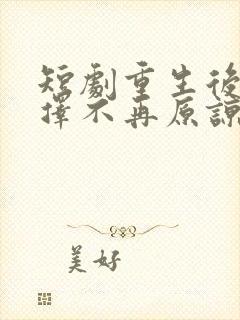 短劇重生後
擇不再原諒
美好